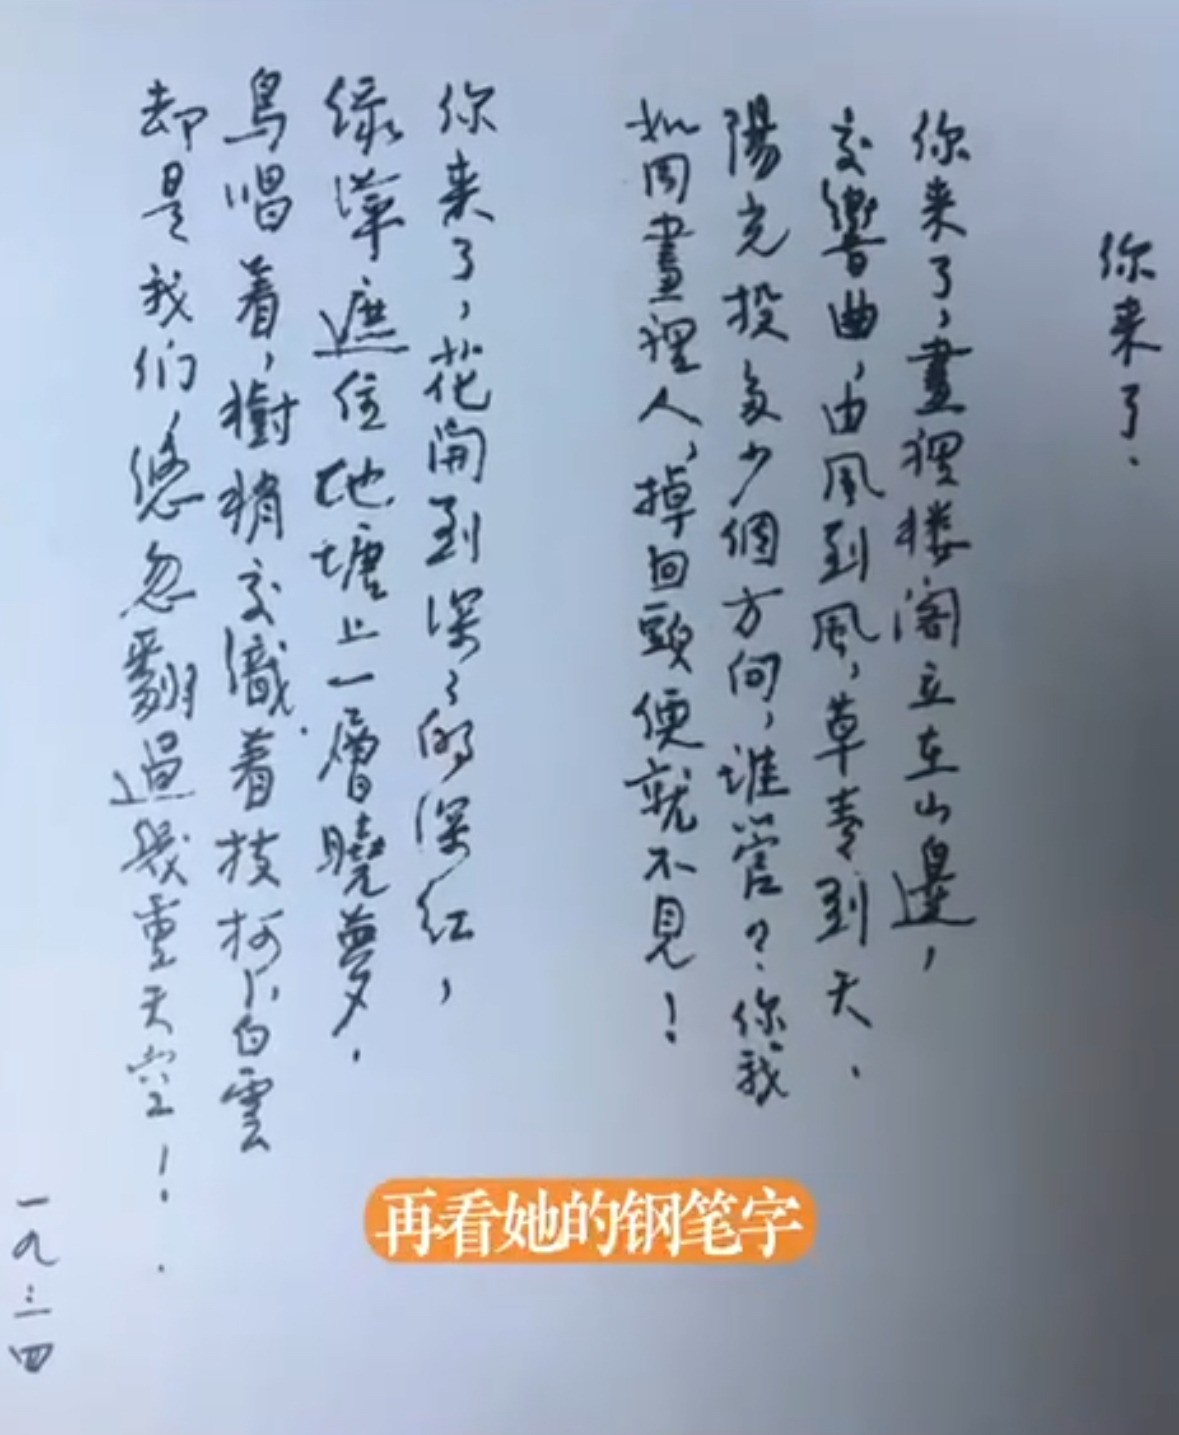 你来了.
你来了，畫裡楼阁立在山邊，
交響曲，由風到風，草青到天.
陽光投多少個方向，誰管？你我
如同畫裡人，掉回頭便就不見！
你来了，花開到深深的深紅，
绿萍遮住地塘上一層曉夢.
鳥唱着，樹稍交織着枝柯，白雲
却是我们，悠忽翻過幾重天空！
一九三四
再看她的钢笔字